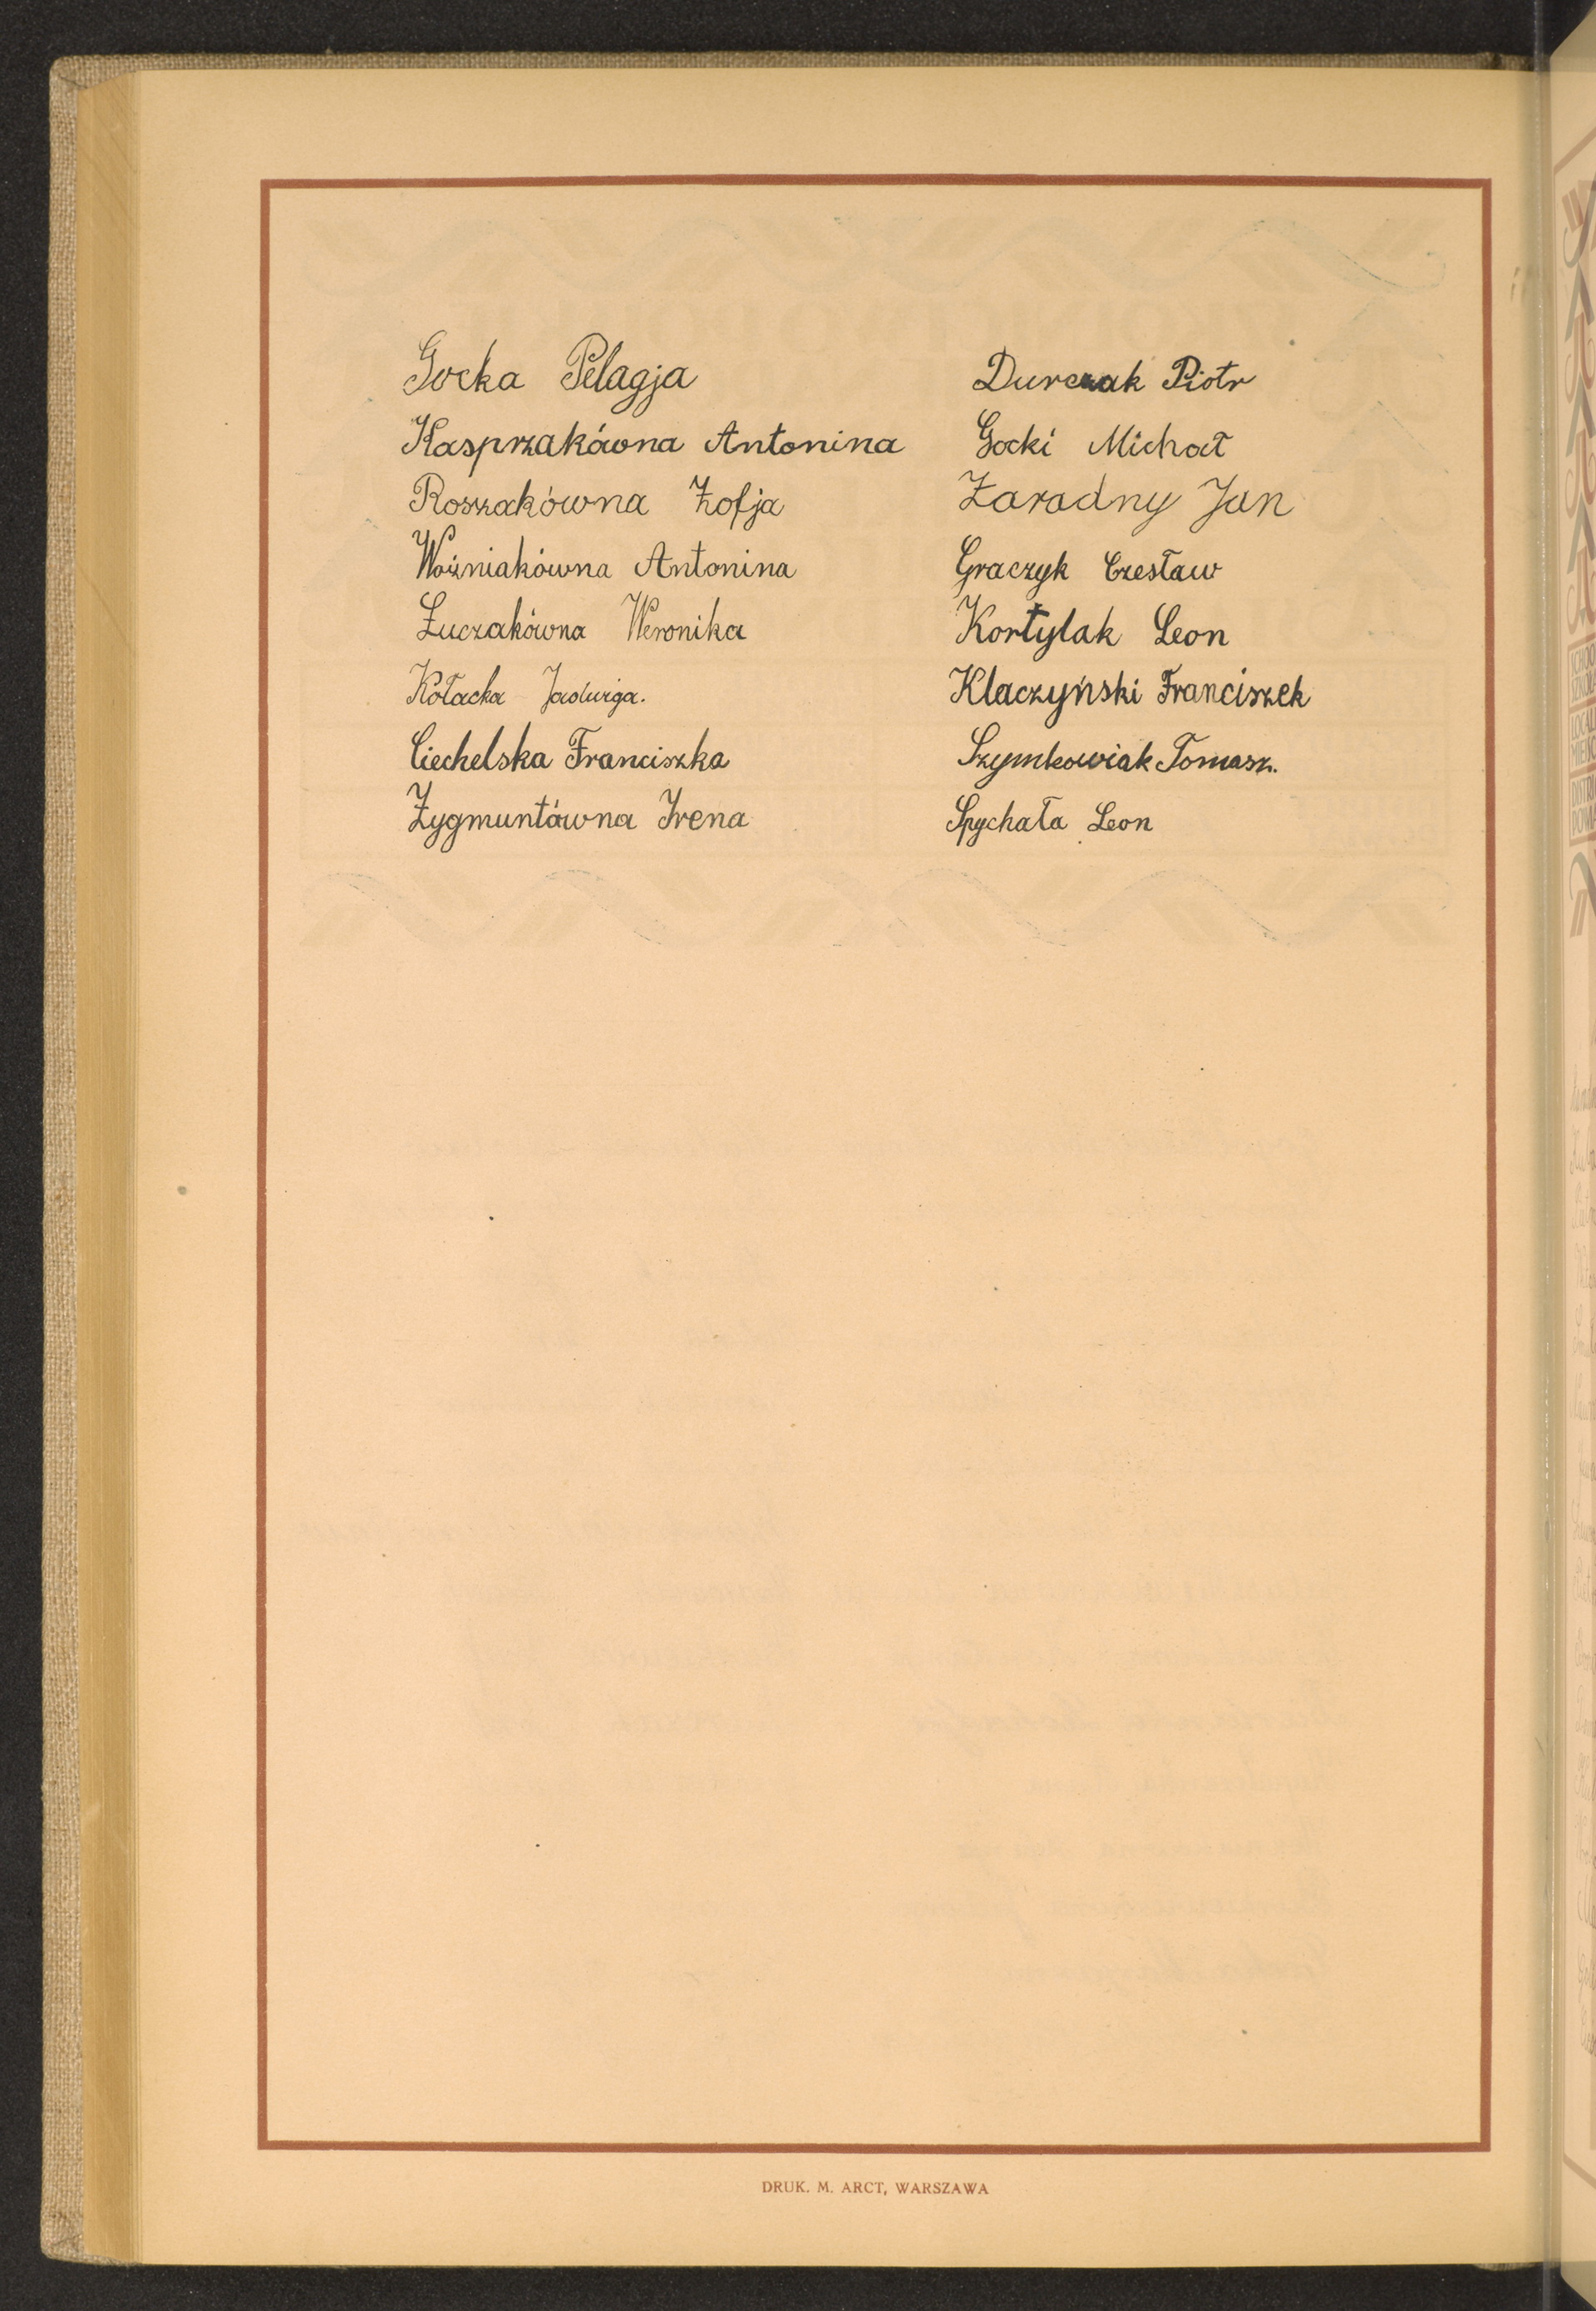 Gocka Pelagja
Kasprzakówna Antonina
Roszakówna Zofja
Woźniakówna Antonina
Łuczakówna Weronika
Kołacka Jadwiga.
Ciechelska Franciszka
Zygmuntówna Irena
Durczak Piotr
Gocki Michał
Zaradny Jan
Graczyk Czesław
Kortylak Leon
Klaczyński Franciszek
Szymkowiak Tomasz.
Spychała Leon
DRUK. M. ARCT, WARSZAWA